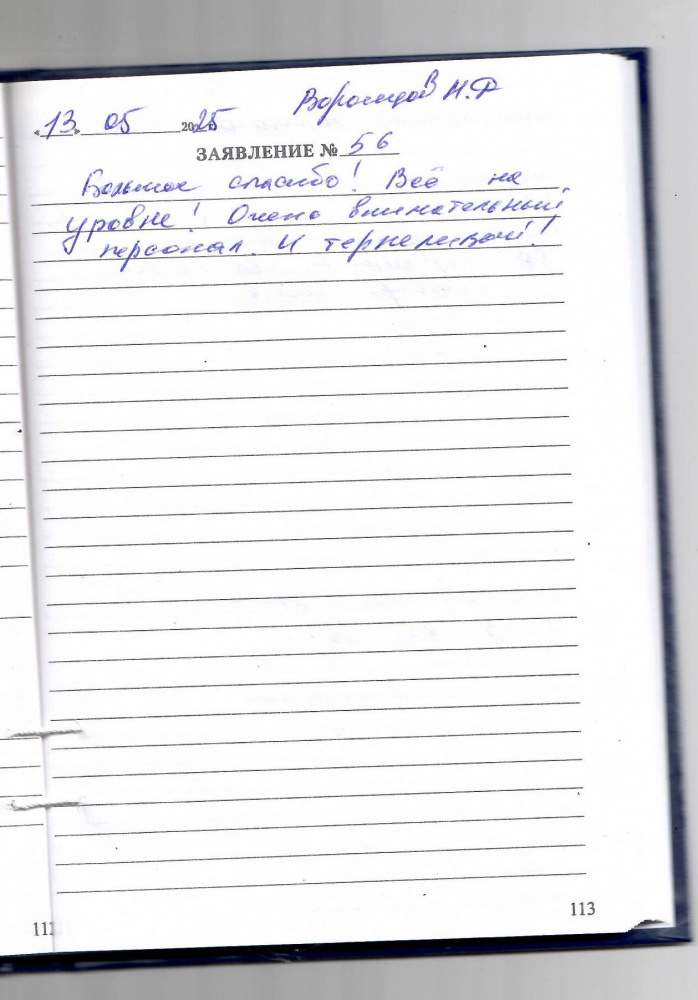 Воронцов Н.Ф
«13» 05 2025
ЗАЯВЛЕНИЕ № 56
Большое спасибо! Всё на
уровне! Очень внимательный
персонал. И терпеливый!
113